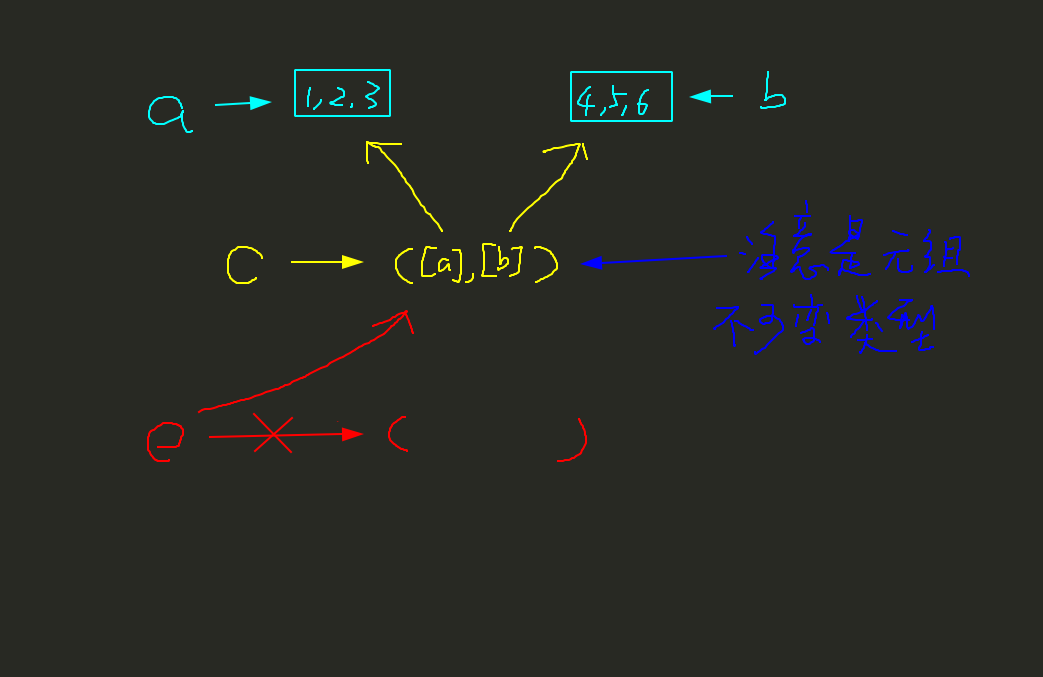 a 1,2,3 4,5,6 b
c ([a],[b]) 注意是元组
不可变类型
e ( )